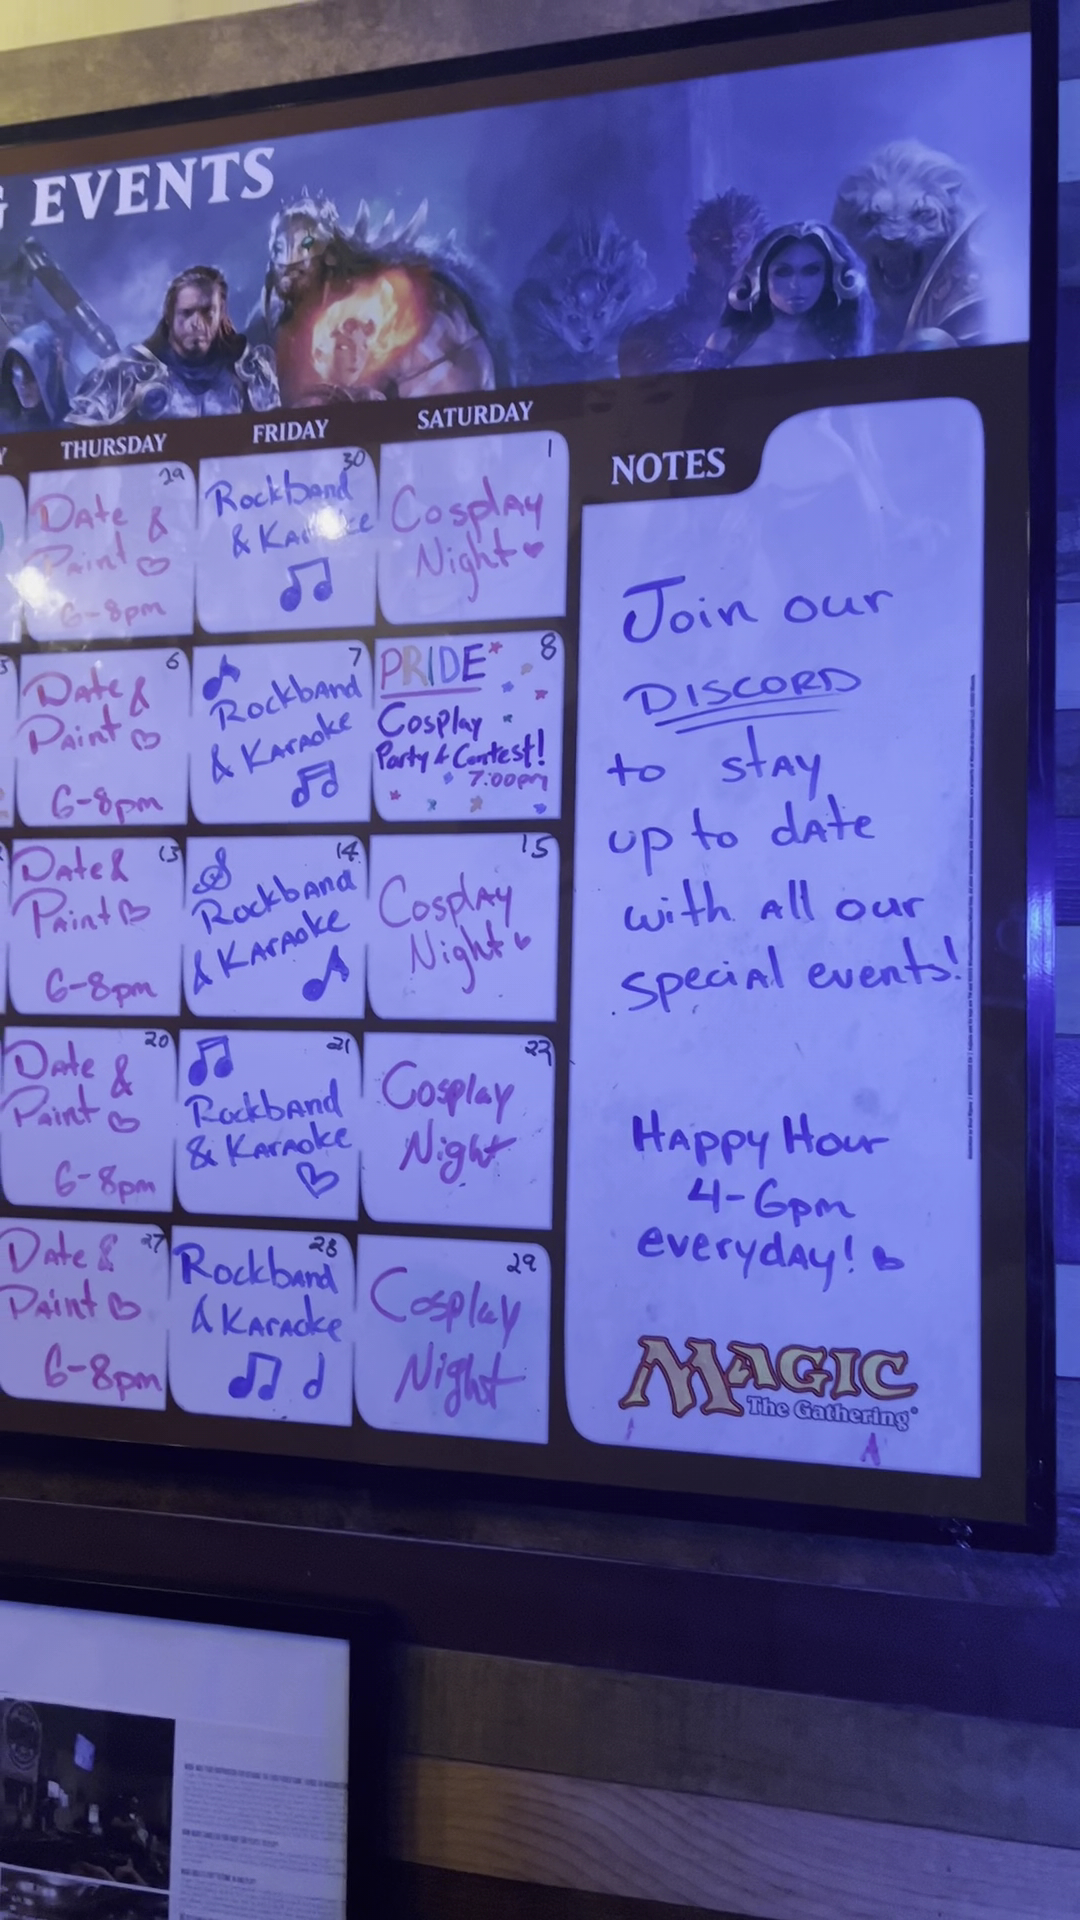 EVENTS
THURSDAY
FRIDAY
SATURDAY
NOTES
29
Date &
Paint
6-8pm
30
Rockband
& Karaoke
1
Cosplay
Night
6
Date &
Paint
6-8pm
7
Rockband
& Karaoke
8
PRIDE
Cosplay
Party & Contest!
7:00pm
13
Date &
Paint
6-8pm
14
Rockband
& Karaoke
15
Cosplay
Night
20
Date &
Paint
6-8pm
21
Rockband
& Karaoke
22
Cosplay
Night
27
Date &
Paint
6-8pm
28
Rockband
& Karaoke
29
Cosplay
Night
Join our
DISCORD
to stay
up to date
with all our
special events!
Happy Hour
4-6pm
everyday!
MAGIC
The Gathering®